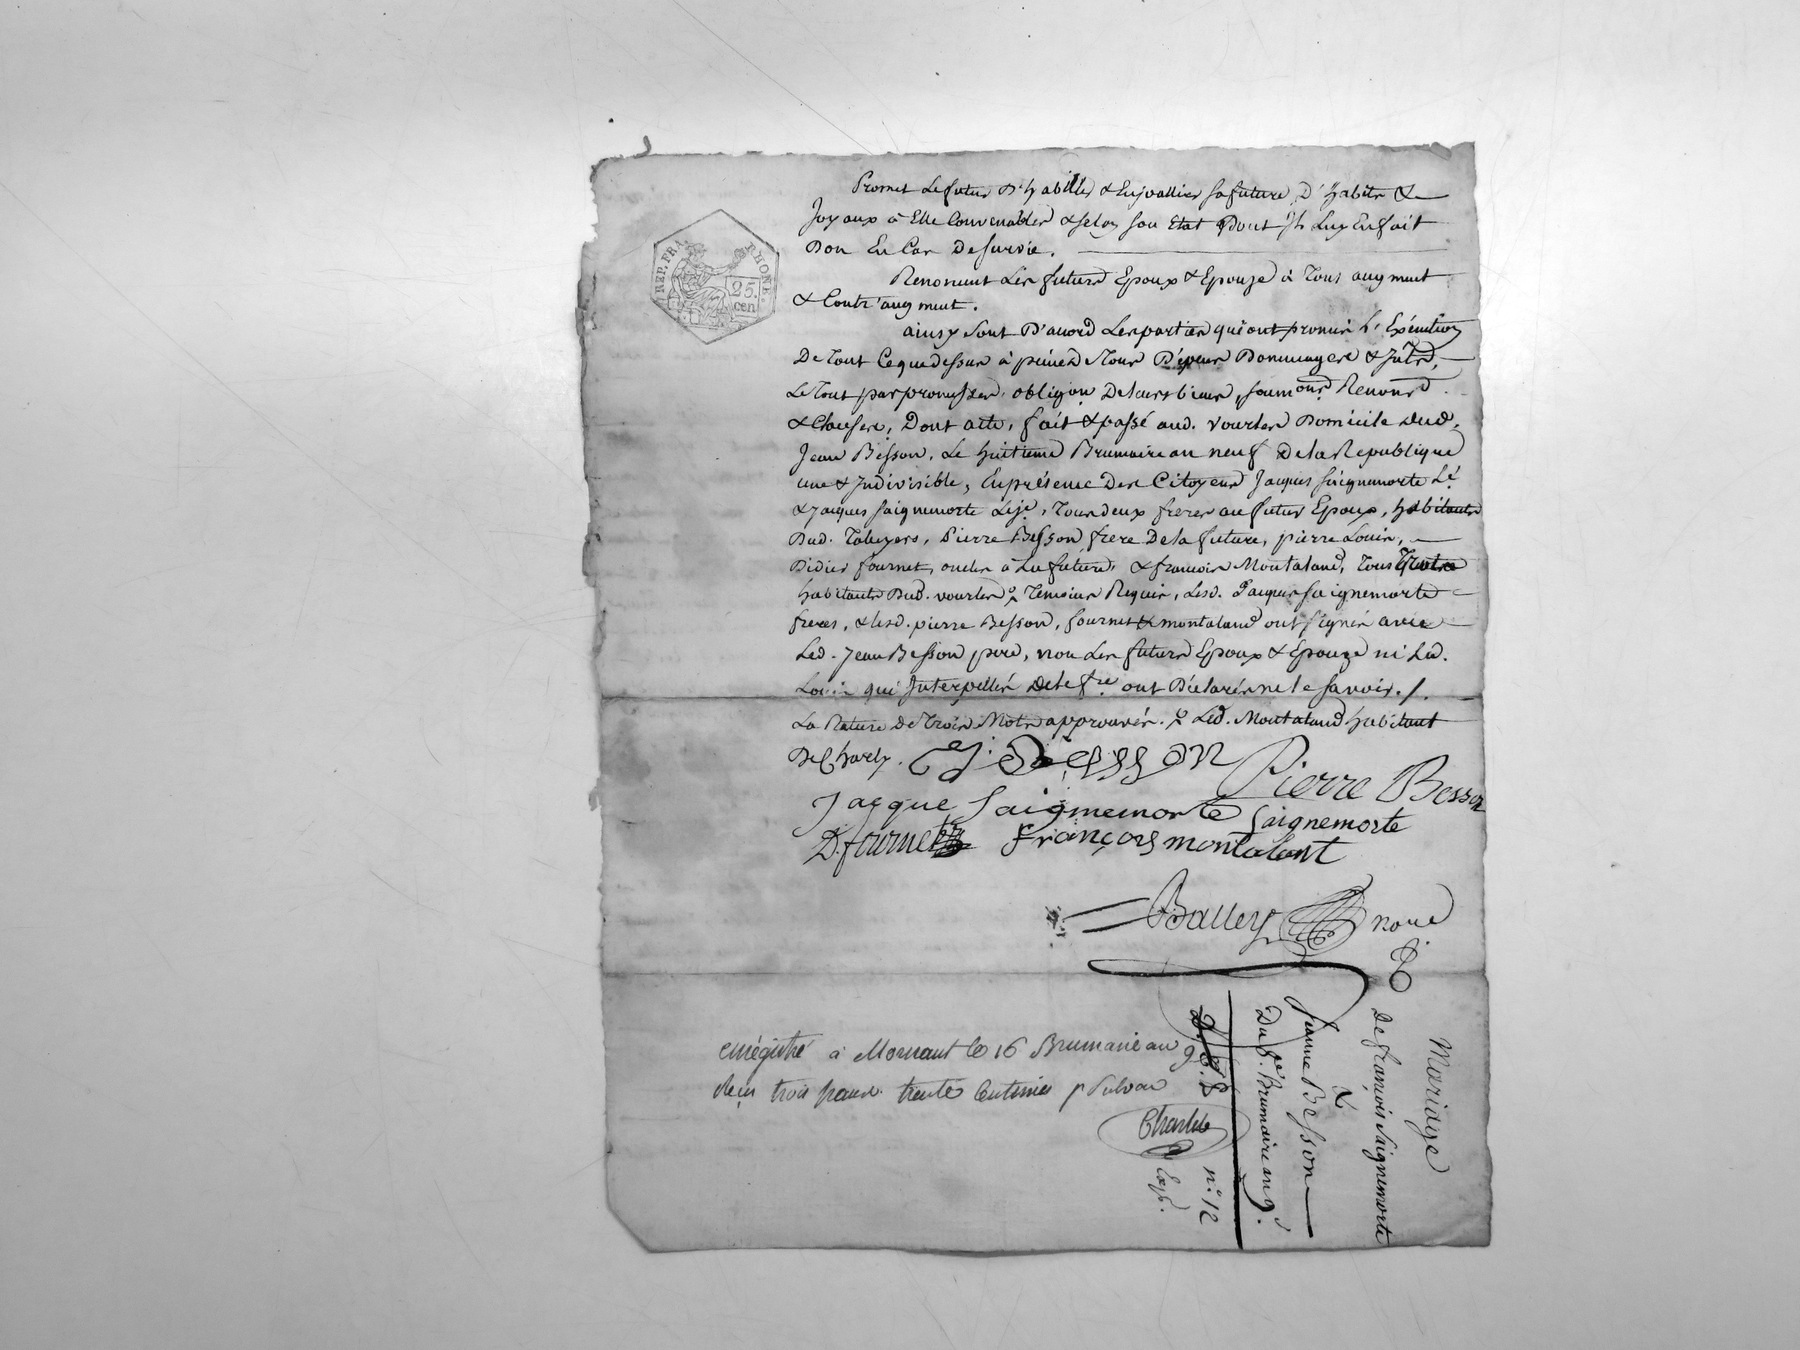 Promet Le futur D'habiller & Enjoallier sa future, D'habits &
Joyaux à Elle Convenables & selon son Etat Dont il Luy En fait
Don En Cas De survie.
Renoncent Les futurs Epoux & Epouze à Tous augment
& Contr'augment.
ainsy sont D'accord Les parties qui ont promis L'Exécution
De Tout Ce que dessus à peines de Tous Dépens Dommages & Intds,
Le Tout par promesses, obligon De leurs biens, soumons Renonds
& Clauses, Dont acte, fait & passé aud. vourles Domicile Dud.
Jean Besson, Le huitieme Brumaire an neuf De la République
une & Indivisible, En présence Des Citoyens Jacques Saignemorte Lé.
& Jacques Saignemorte Leje, Tous deux freres au futur Epoux, habitants
Dud. Taluyers, Pierre Besson frere De la future, pierre Louis,
Didier fournet, oncles à La future, & francois Montaland, Tous
habitants Dud. vourles Temoins Requis, Lesd. Jacques Saignemorte
freres, & lesd. pierre Besson, fournet & montaland ont signés avec
Led. Jean Besson pere, non Les futurs Epoux & Epouze ni Led.
Louis qui Interpellés De le fre. ont Déclarés ne le savoir./.
La Rature de Trois Mots approuvés. Led. Montaland habitant
De Charly.
J. Besson Pierre Besson
Jacque Saignemorte Saignemorte
D. fournet François montalant
Balley nore
REP. FRA.
RHONE.
25.
cen
enregistré à Mornant le 16 Brumaire an 9
Reçu trois francs trente Centimes
Mariage
De françois Saignemorte
&
Jeanne Besson
Du 8e. Brumaire an 9.
no. 12
Exp.